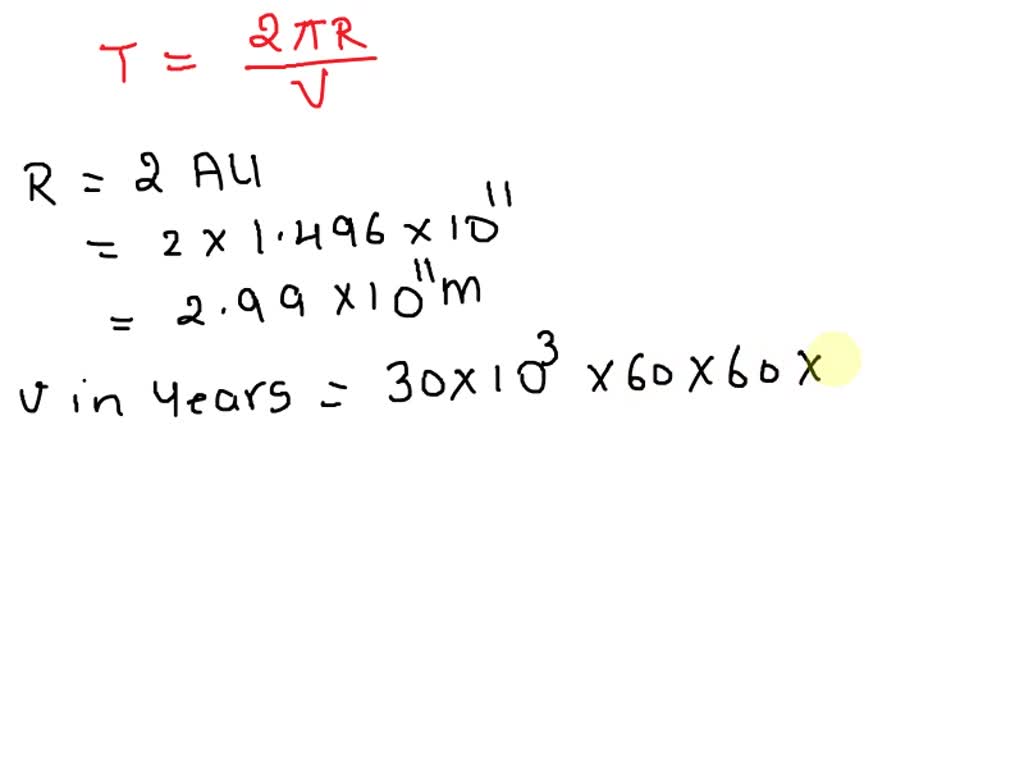 T = 2πR / V
R = 2 AU
= 2 × 1.496 × 10¹¹
= 2.99 × 10¹¹ m
v in years = 30 × 10³ × 60 × 60 ×